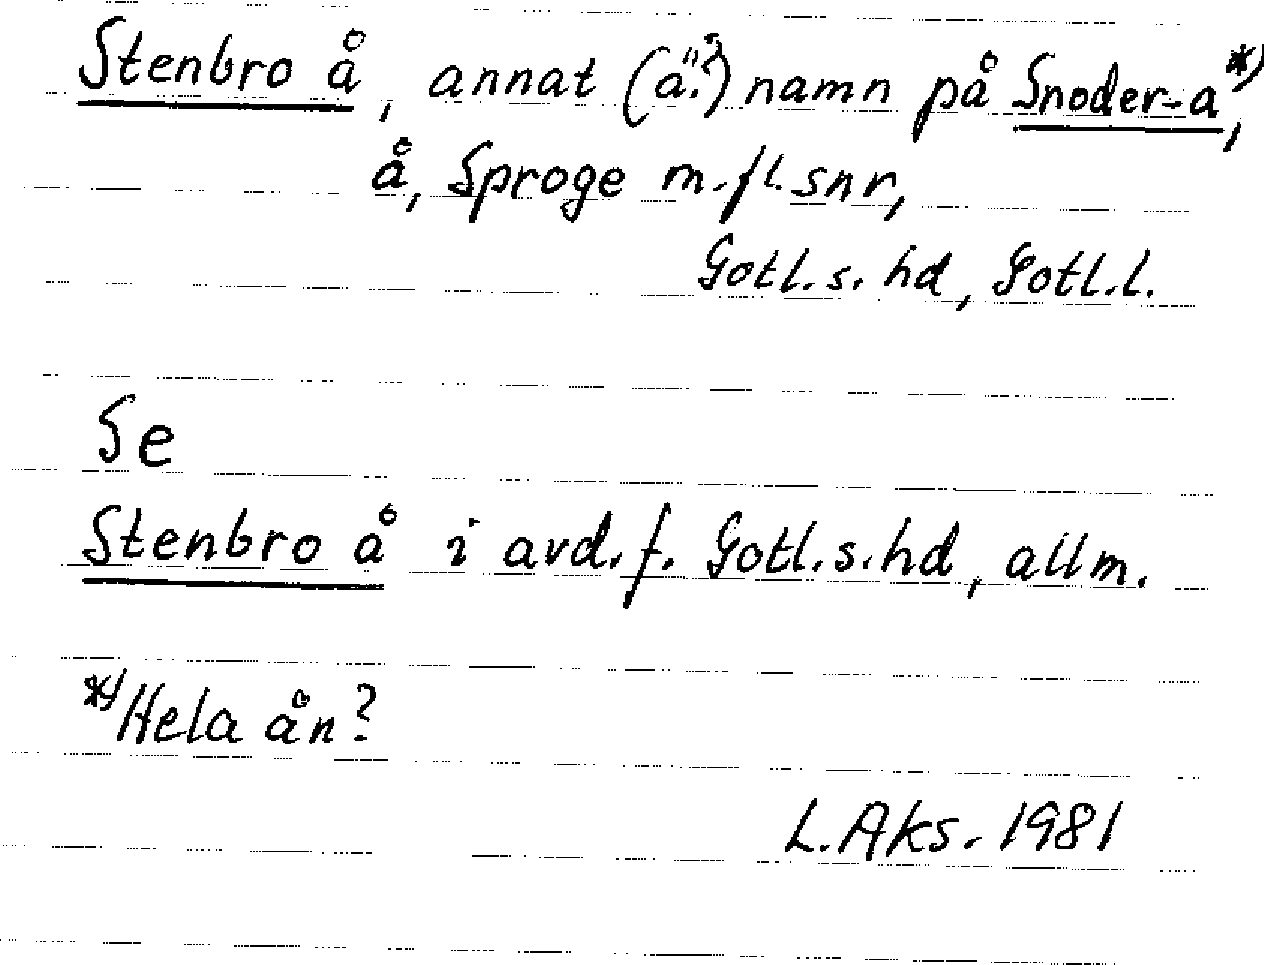 Stenbro å, annat (ä.?) namn på Snoder-a*),
å, Sproge m.fl. snr,
Gotl. s. hd, Gotl. l.
Se
Stenbro å i avd. f. Gotl. s. hd, allm.
*) Hela ån?
L. Aks. 1981